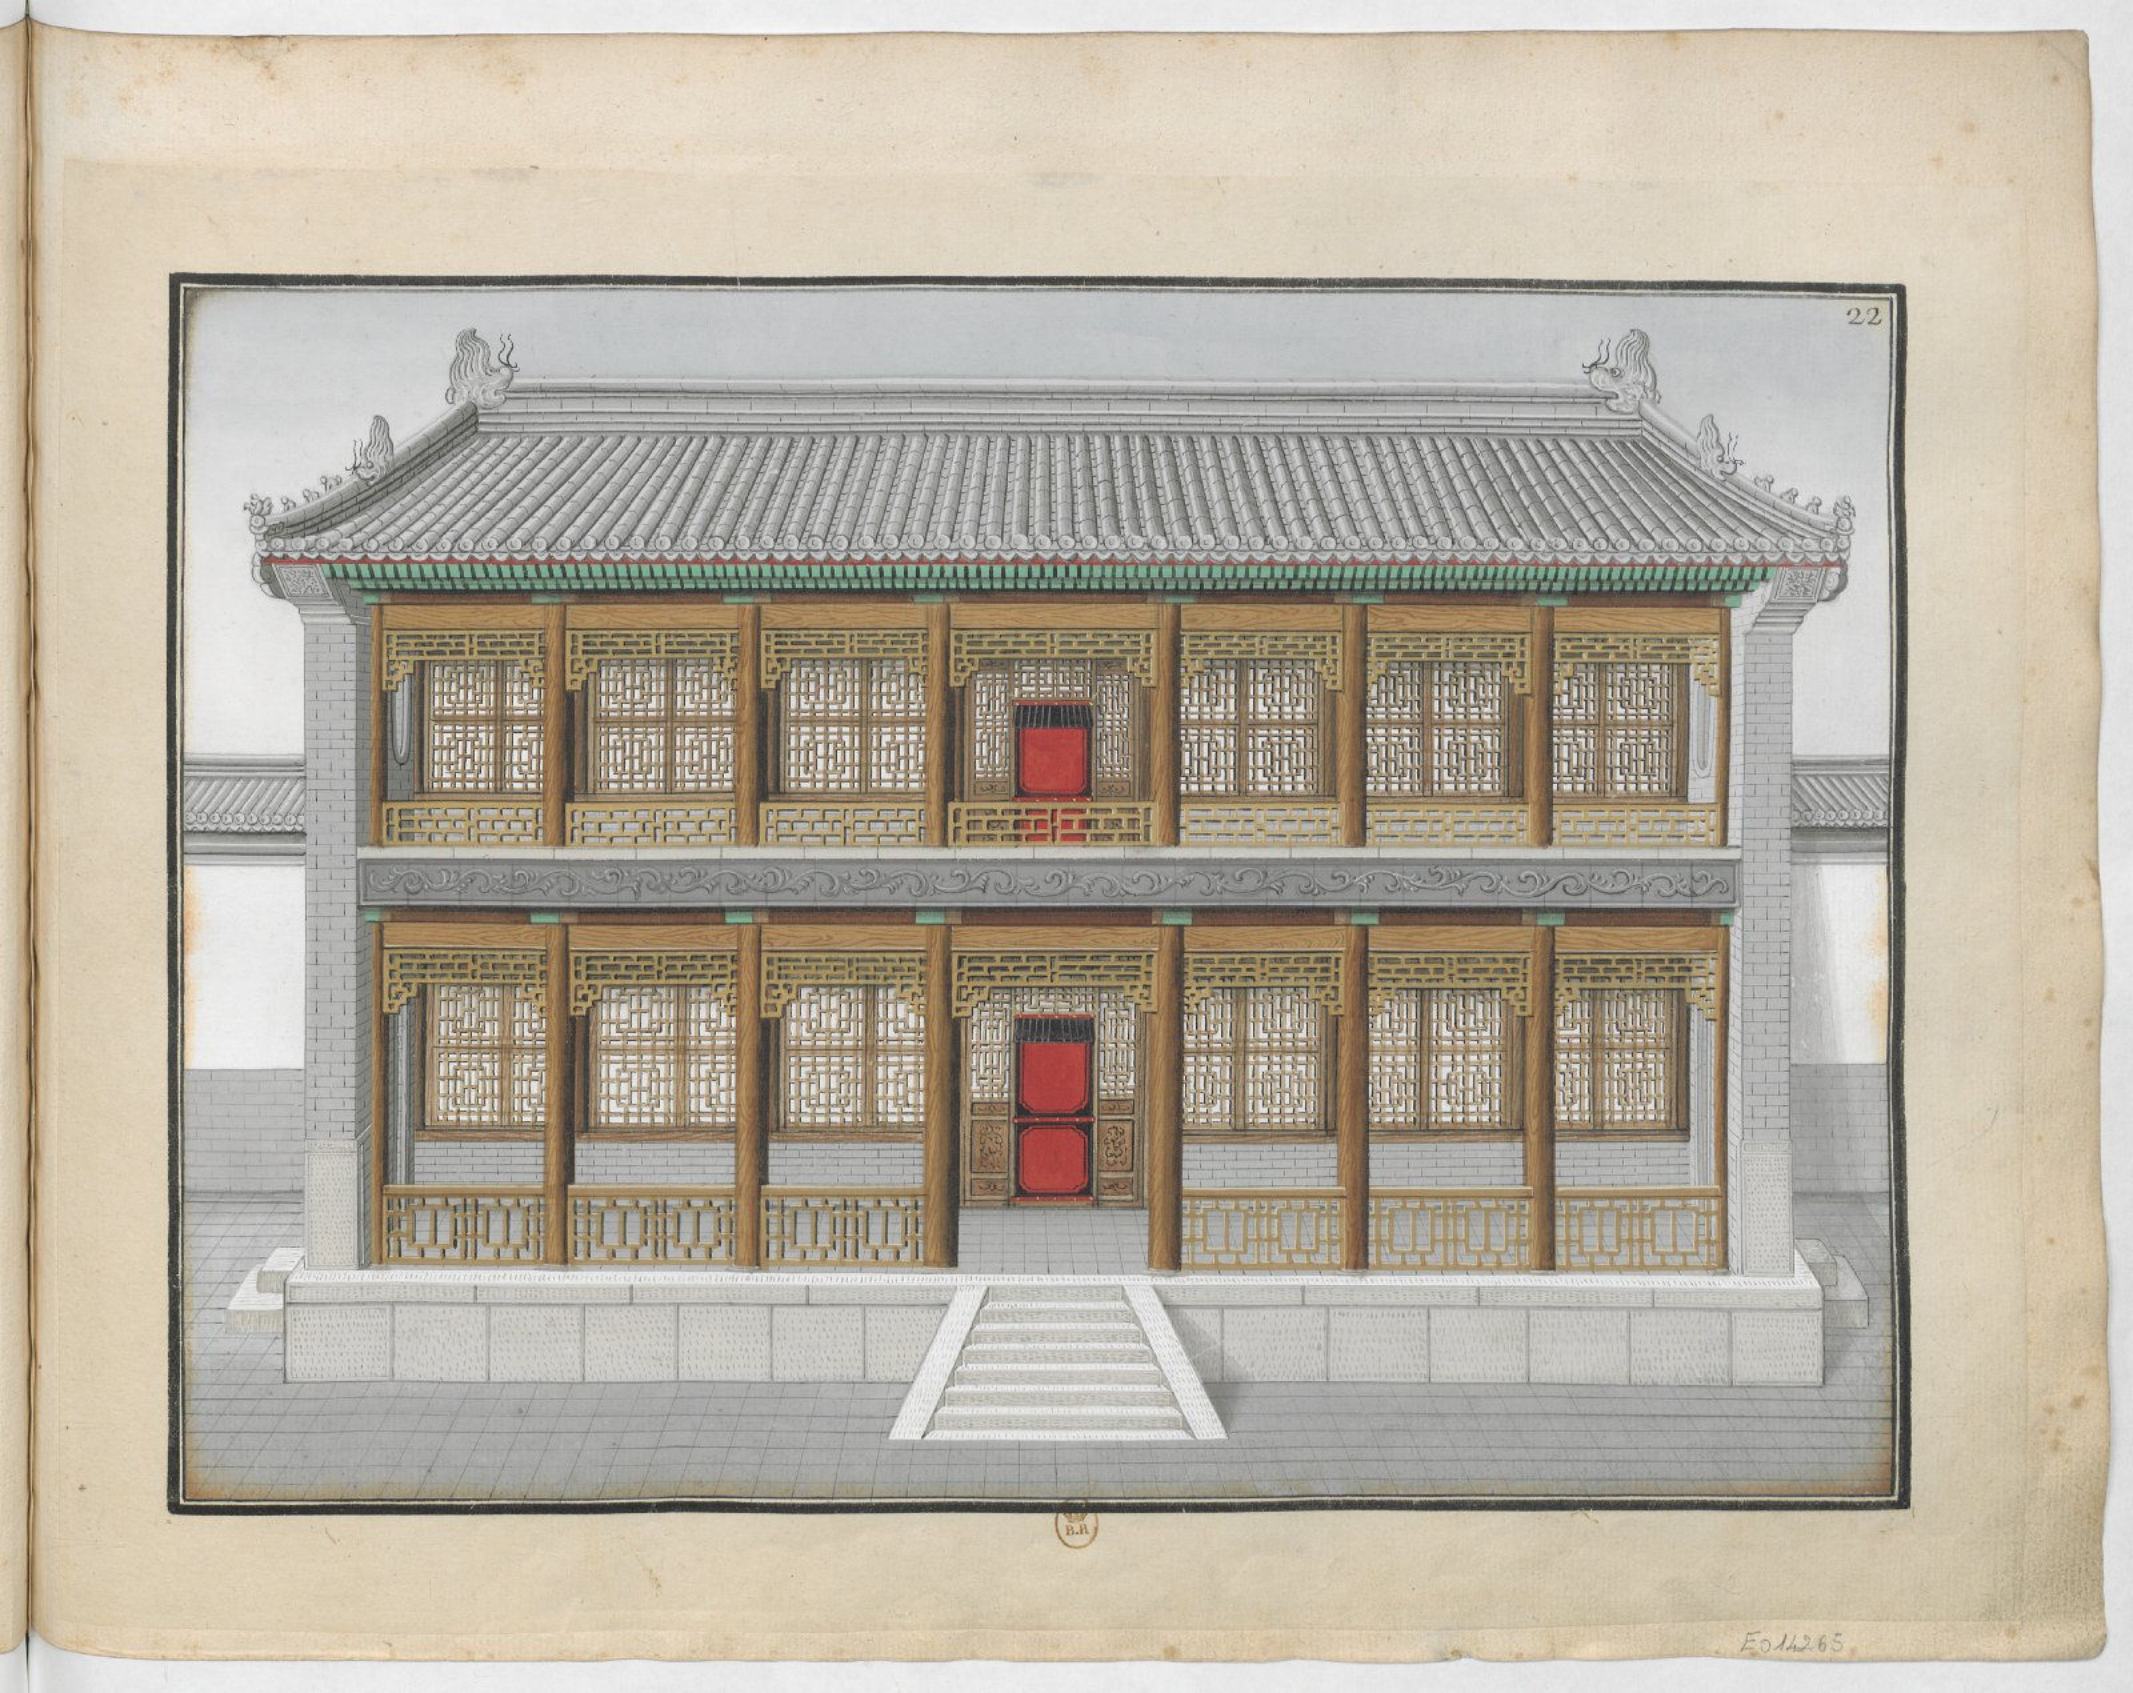 22
B.R
E014265